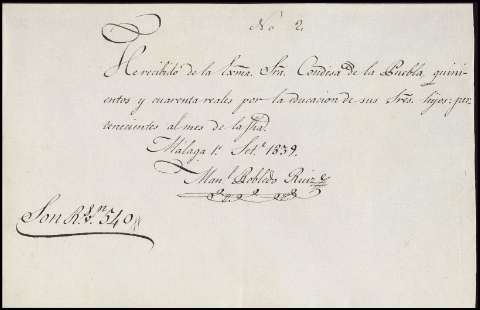 No 2.
He recibido de la Exma. Sra. Condesa de la Puebla quini-
entos y cuarenta reales por la educacion de sus Sres. hijos: per-
tenecientes al mes de la fha.
Málaga 1º Set.e 1839.
Man.l Robledo Ruiz
Son Rs. vn. 540